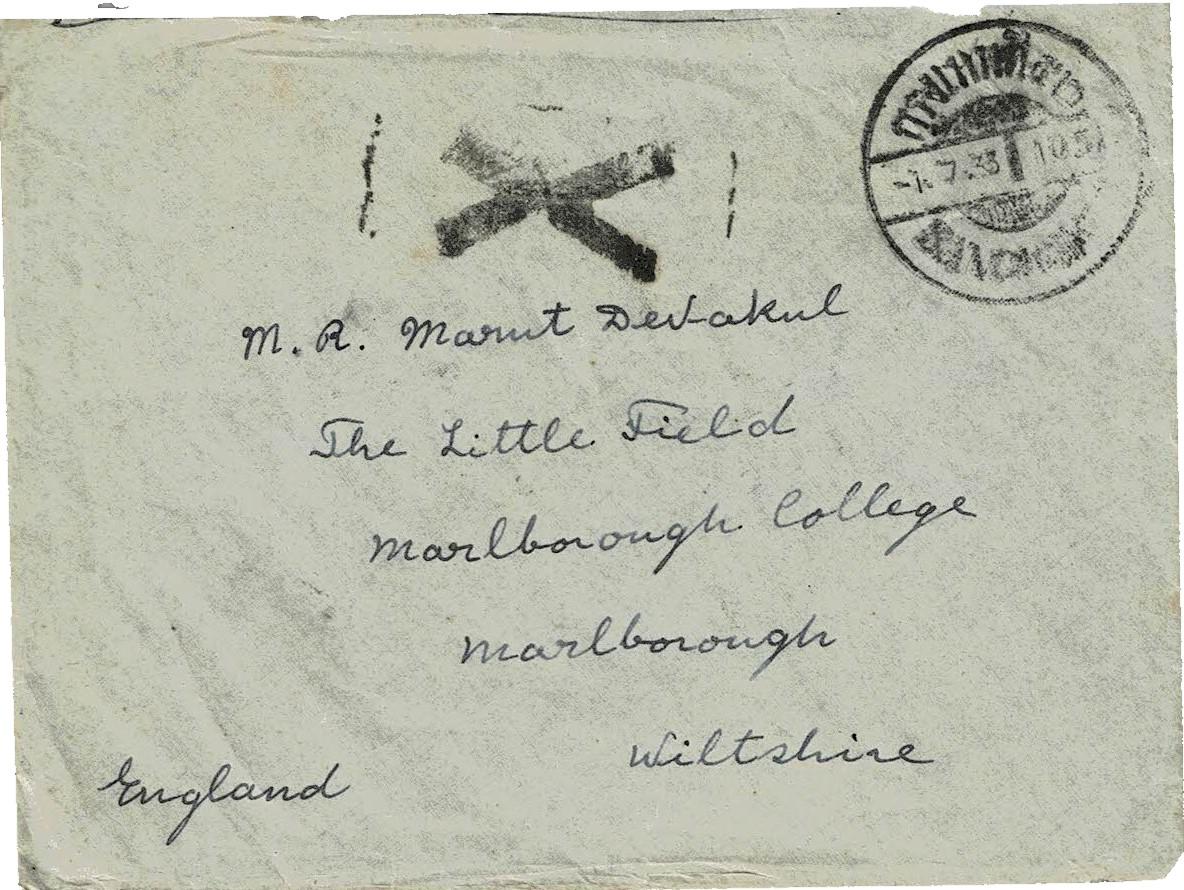 -1.7.33 10.5
BANGKOK
M. R. Marut Devakul
The Little Field
Marlborough College
Marlborough
Wiltshire
England